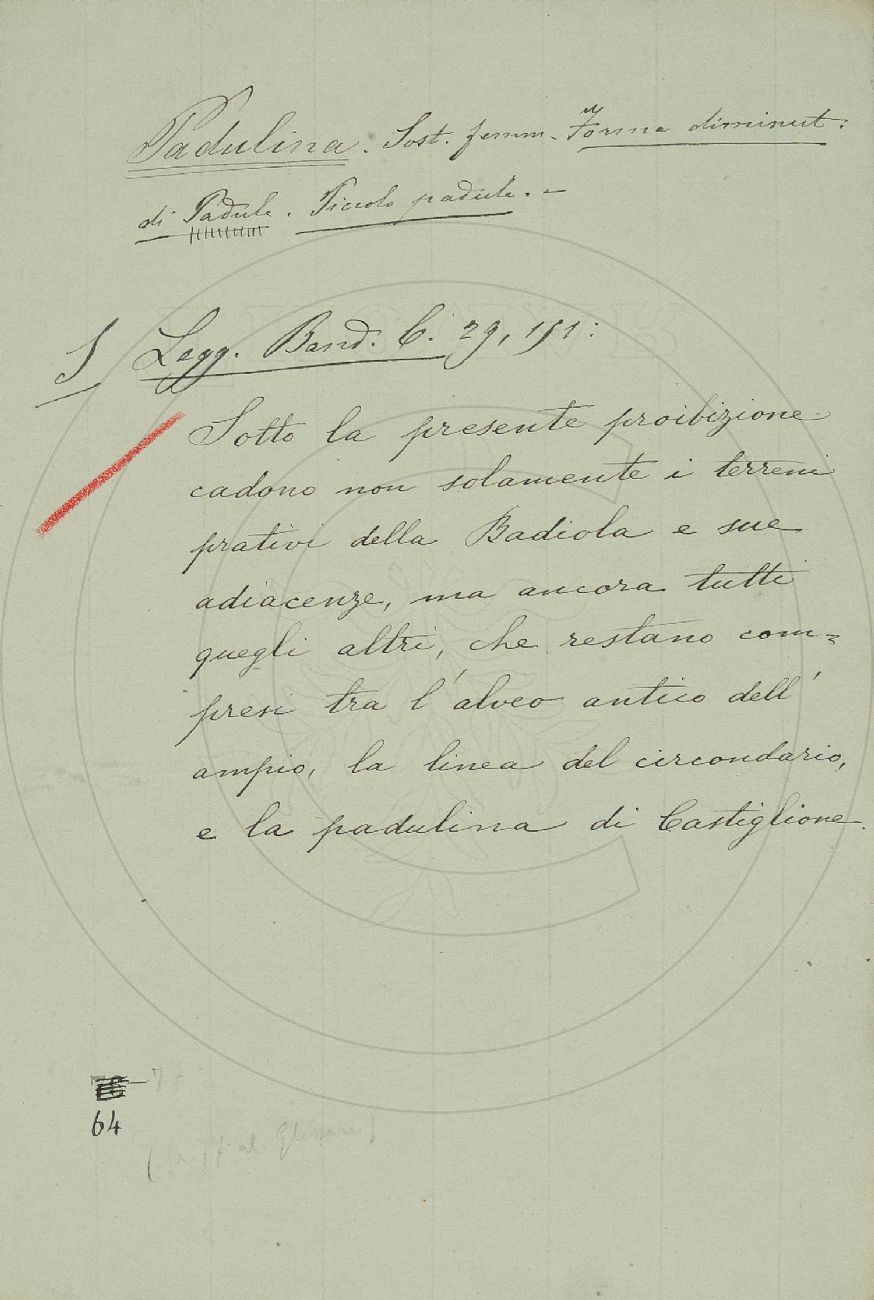 Padulina. Sost. femm. Forma diminut:
di Padule. Piccolo padule. –
S Legg. Band. C. 29, 151:
Sotto la presente proibizione
cadono non solamente i terreni
prativi della Badiola e sue
adiacenze, ma ancora tutti
quegli altri, che restano com=
presi tra l'alveo antico dell'
ampio, la linea del circondario,
e la padulina di Castiglione.
64